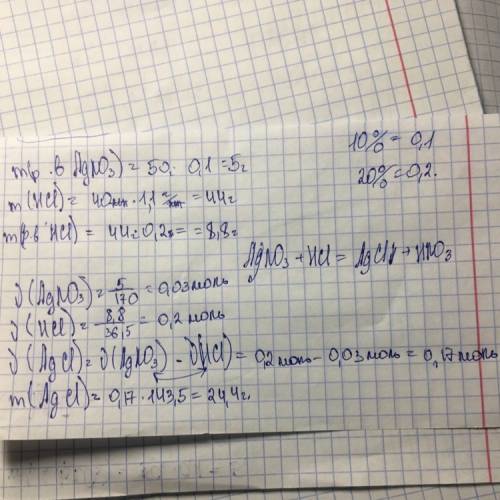 mр.в(AgNO₃) = 50. 0,1 = 5г
10% = 0,1
20% = 0,2.
m(HCl) = 40мл · 1,1 г/мл = 44г
mр.в(HCl) = 44г · 0,2 = = 8,8г
AgNO₃ + HCl = AgCl↓ + HNO₃
ν(AgNO₃) = 5/170 = 0,03 моль
ν(HCl) = 8,8/36,5 = 0,2 моль
ν(AgCl) = ν(AgNO₃) - ν(HCl) = 0,2 моль - 0,03 моль = 0,17 моль
m(AgCl) = 0,17 · 143,5 = 24,4г.